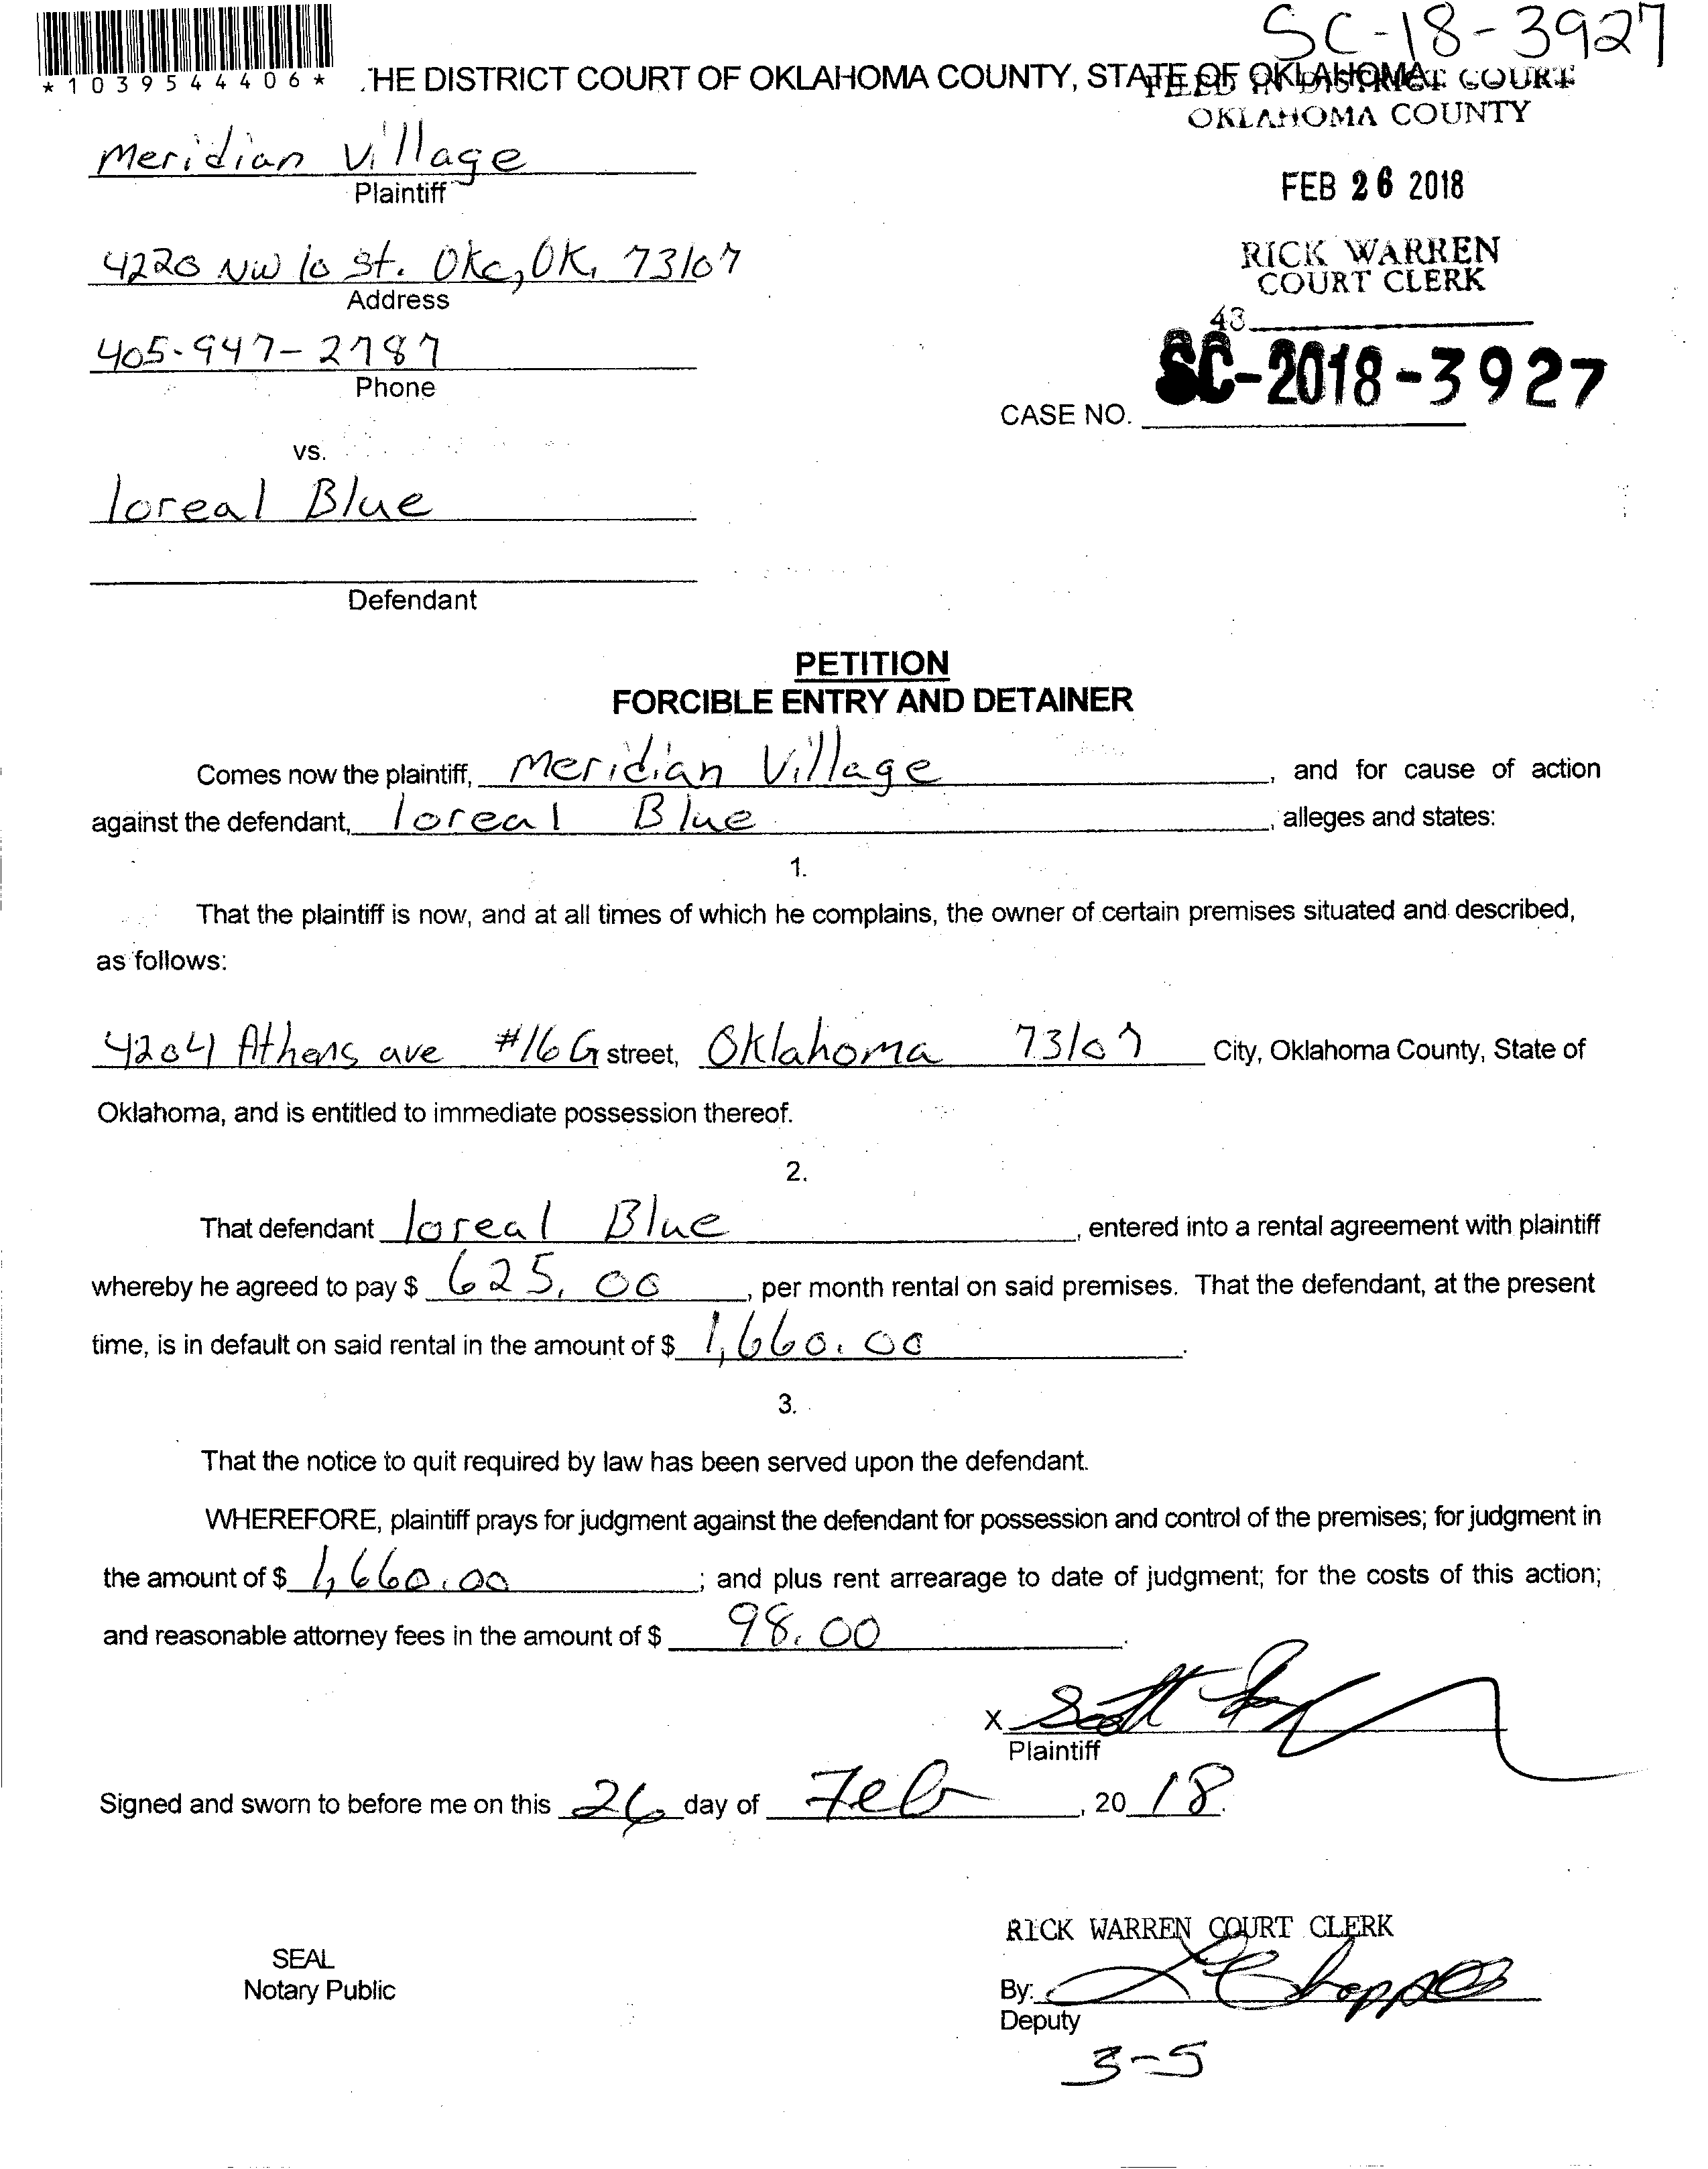 SC-18-3927
*1039544406*
THE DISTRICT COURT OF OKLAHOMA COUNTY, STATE OF OKLAHOMA
FILED IN DISTRICT COURT
OKLAHOMA COUNTY
Meridian Village
Plaintiff
FEB 26 2018
4220 NW 10 St. OKC, OK, 73107
Address
RICK WARREN
COURT CLERK
43
405-947-2787
Phone
SC-2018-3927
CASE NO.
vs.
loreal Blue
Defendant
PETITION
FORCIBLE ENTRY AND DETAINER
Comes now the plaintiff, Meridian Village, and for cause of action
against the defendant, loreal Blue, alleges and states:
1.
That the plaintiff is now, and at all times of which he complains, the owner of certain premises situated and described,
as follows:
4204 Athens ave #16G street, Oklahoma 73107 City, Oklahoma County, State of
Oklahoma, and is entitled to immediate possession thereof.
2.
That defendant loreal Blue, entered into a rental agreement with plaintiff
whereby he agreed to pay $ 625.00, per month rental on said premises. That the defendant, at the present
time, is in default on said rental in the amount of $ 1,660.00.
3.
That the notice to quit required by law has been served upon the defendant.
WHEREFORE, plaintiff prays for judgment against the defendant for possession and control of the premises; for judgment in
the amount of $ 1,660.00; and plus rent arrearage to date of judgment; for the costs of this action;
and reasonable attorney fees in the amount of $ 98.00.
X Scott
Plaintiff
Signed and sworn to before me on this 26 day of Feb, 2018.
RICK WARREN COURT CLERK
SEAL
Notary Public
By:
Deputy
3-5